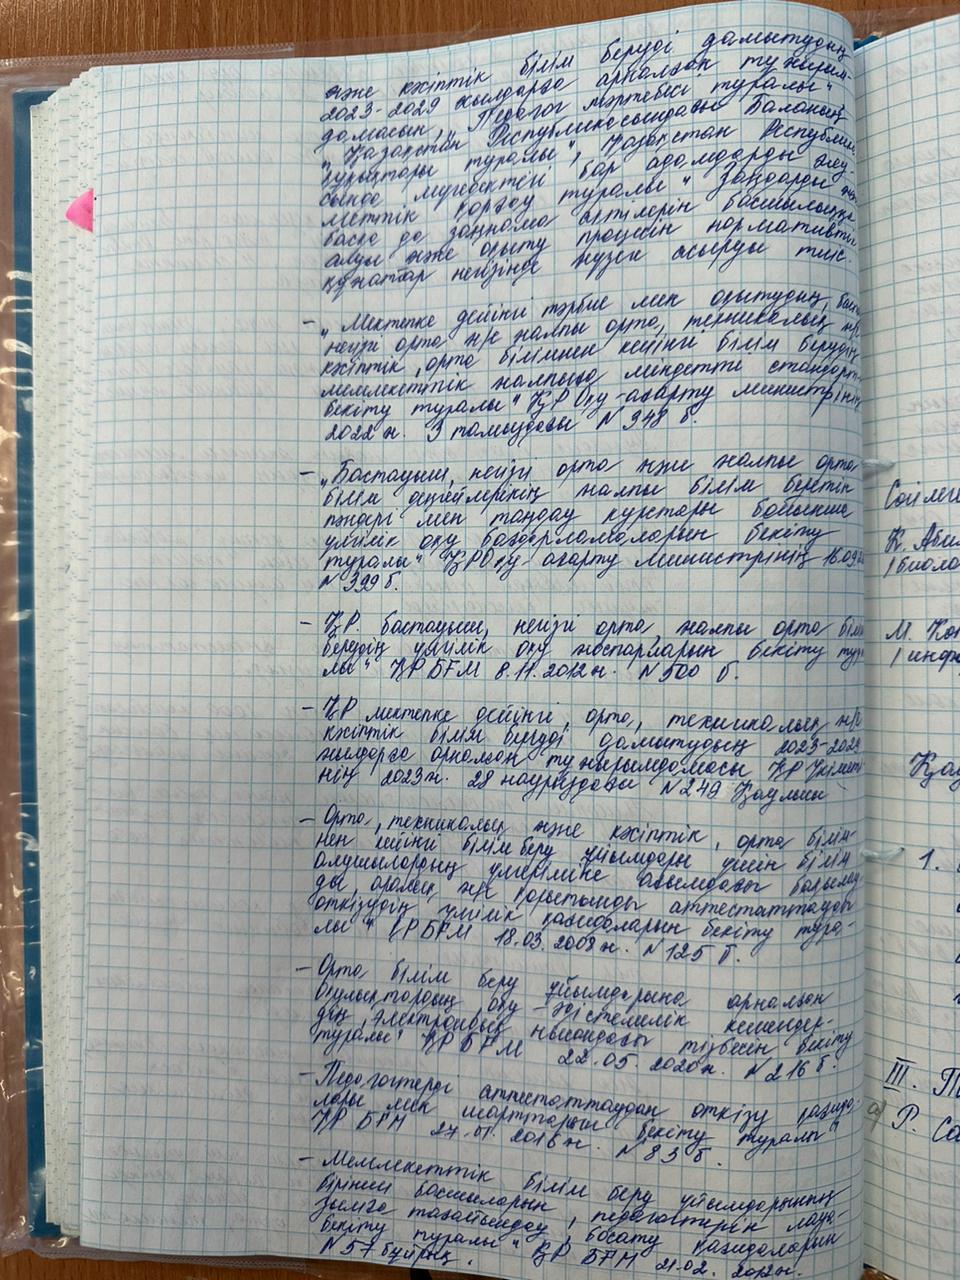 және кәсіптік білім беруді дамытудың
2023-2029 жылдарға арналған тұжырым-
дамасын, "Педагог мәртебесі туралы"
"Қазақстан Республикасындағы Баланың
құқықтары туралы", Қазақстан Республика-
сында мүгедектігі бар адамдарды әлеу-
меттік қорғау туралы" Заңдарды және
басқа да заңнама актілерін басшылыққа
алуы және оқыту процесін нормативтік
құжаттар негізінде жүзеге асыруы тиіс.
- "Мектепке дейінгі тәрбие мен оқытудың, баст
негізгі орта ж/е жалпы орта, техникалық ж/е
кәсіптік, орта білімнен кейінгі білім берудің
мемлекеттік жалпыға міндетті стандарт-
бекіту туралы" ҚР Оқу-ағарту министрінің
2022 ж. 3 тамыздағы N 348 б.
- "Бастауыш, негізгі орта және жалпы орта
білім деңгейлерінің жалпы білім беретін
пәндері мен таңдау курстары бойынша
үлгілік оқу бағдарламаларын бекіту
туралы" ҚР Оқу-ағарту Министрінің 16.09.
N 399 б.
- ҚР. бастауыш, негізгі орта, жалпы орта білім
берудің үлгілік оқу жоспарларын бекіту тура
лы" ҚР БҒМ 8.11.2012 ж. N 500 б.
- ҚР мектепке дейінгі, орта, техникалық ж/е
кәсіптік білім беруді дамытудың 2023-2029
жылдарға арналған тұжырымдамасы ҚР Үкіметі
нің 2023 ж. 28 наурыздағы N 249 Қаулысы
- Орта, техникалық және кәсіптік, орта білім-
нен кейінгі білім беру ұйымдары үшін білім
алушылардың үлгеріміне ағымдағы бақылау
ды, аралық ж/е қорытынды аттестаттауды
өткізудің үлгілік қағидаларын бекіту тура-
лы" ҚР БҒМ 18.03.2008 ж. N 125 б.
- Орта білім беру ұйымдарына арналған
оқулықтардың оқу-әдістемелік кешендер-
дің, электрондық нысандағы тізбесін бекіту
туралы" ҚР БҒМ 22.05.2020 ж. N 216 б.
- Педагогтерді аттестаттаудан өткізу қағида-
лары мен шарттарын бекіту туралы"
ҚР БҒМ 27.01.2016 ж. N 83 б.
- Мемлекеттік білім беру ұйымдарының
бірінші басшыларын, педагогтерін лауа-
зымға тағайындау, босату қағидаларын
бекіту туралы" ҚР БҒМ 21.02.2012 ж.
N 57 бұйрық.
Сөйлеге
К. Аби
/биоло
М. Қон
/инфо
Қау
1.
III. Т
Р. Са